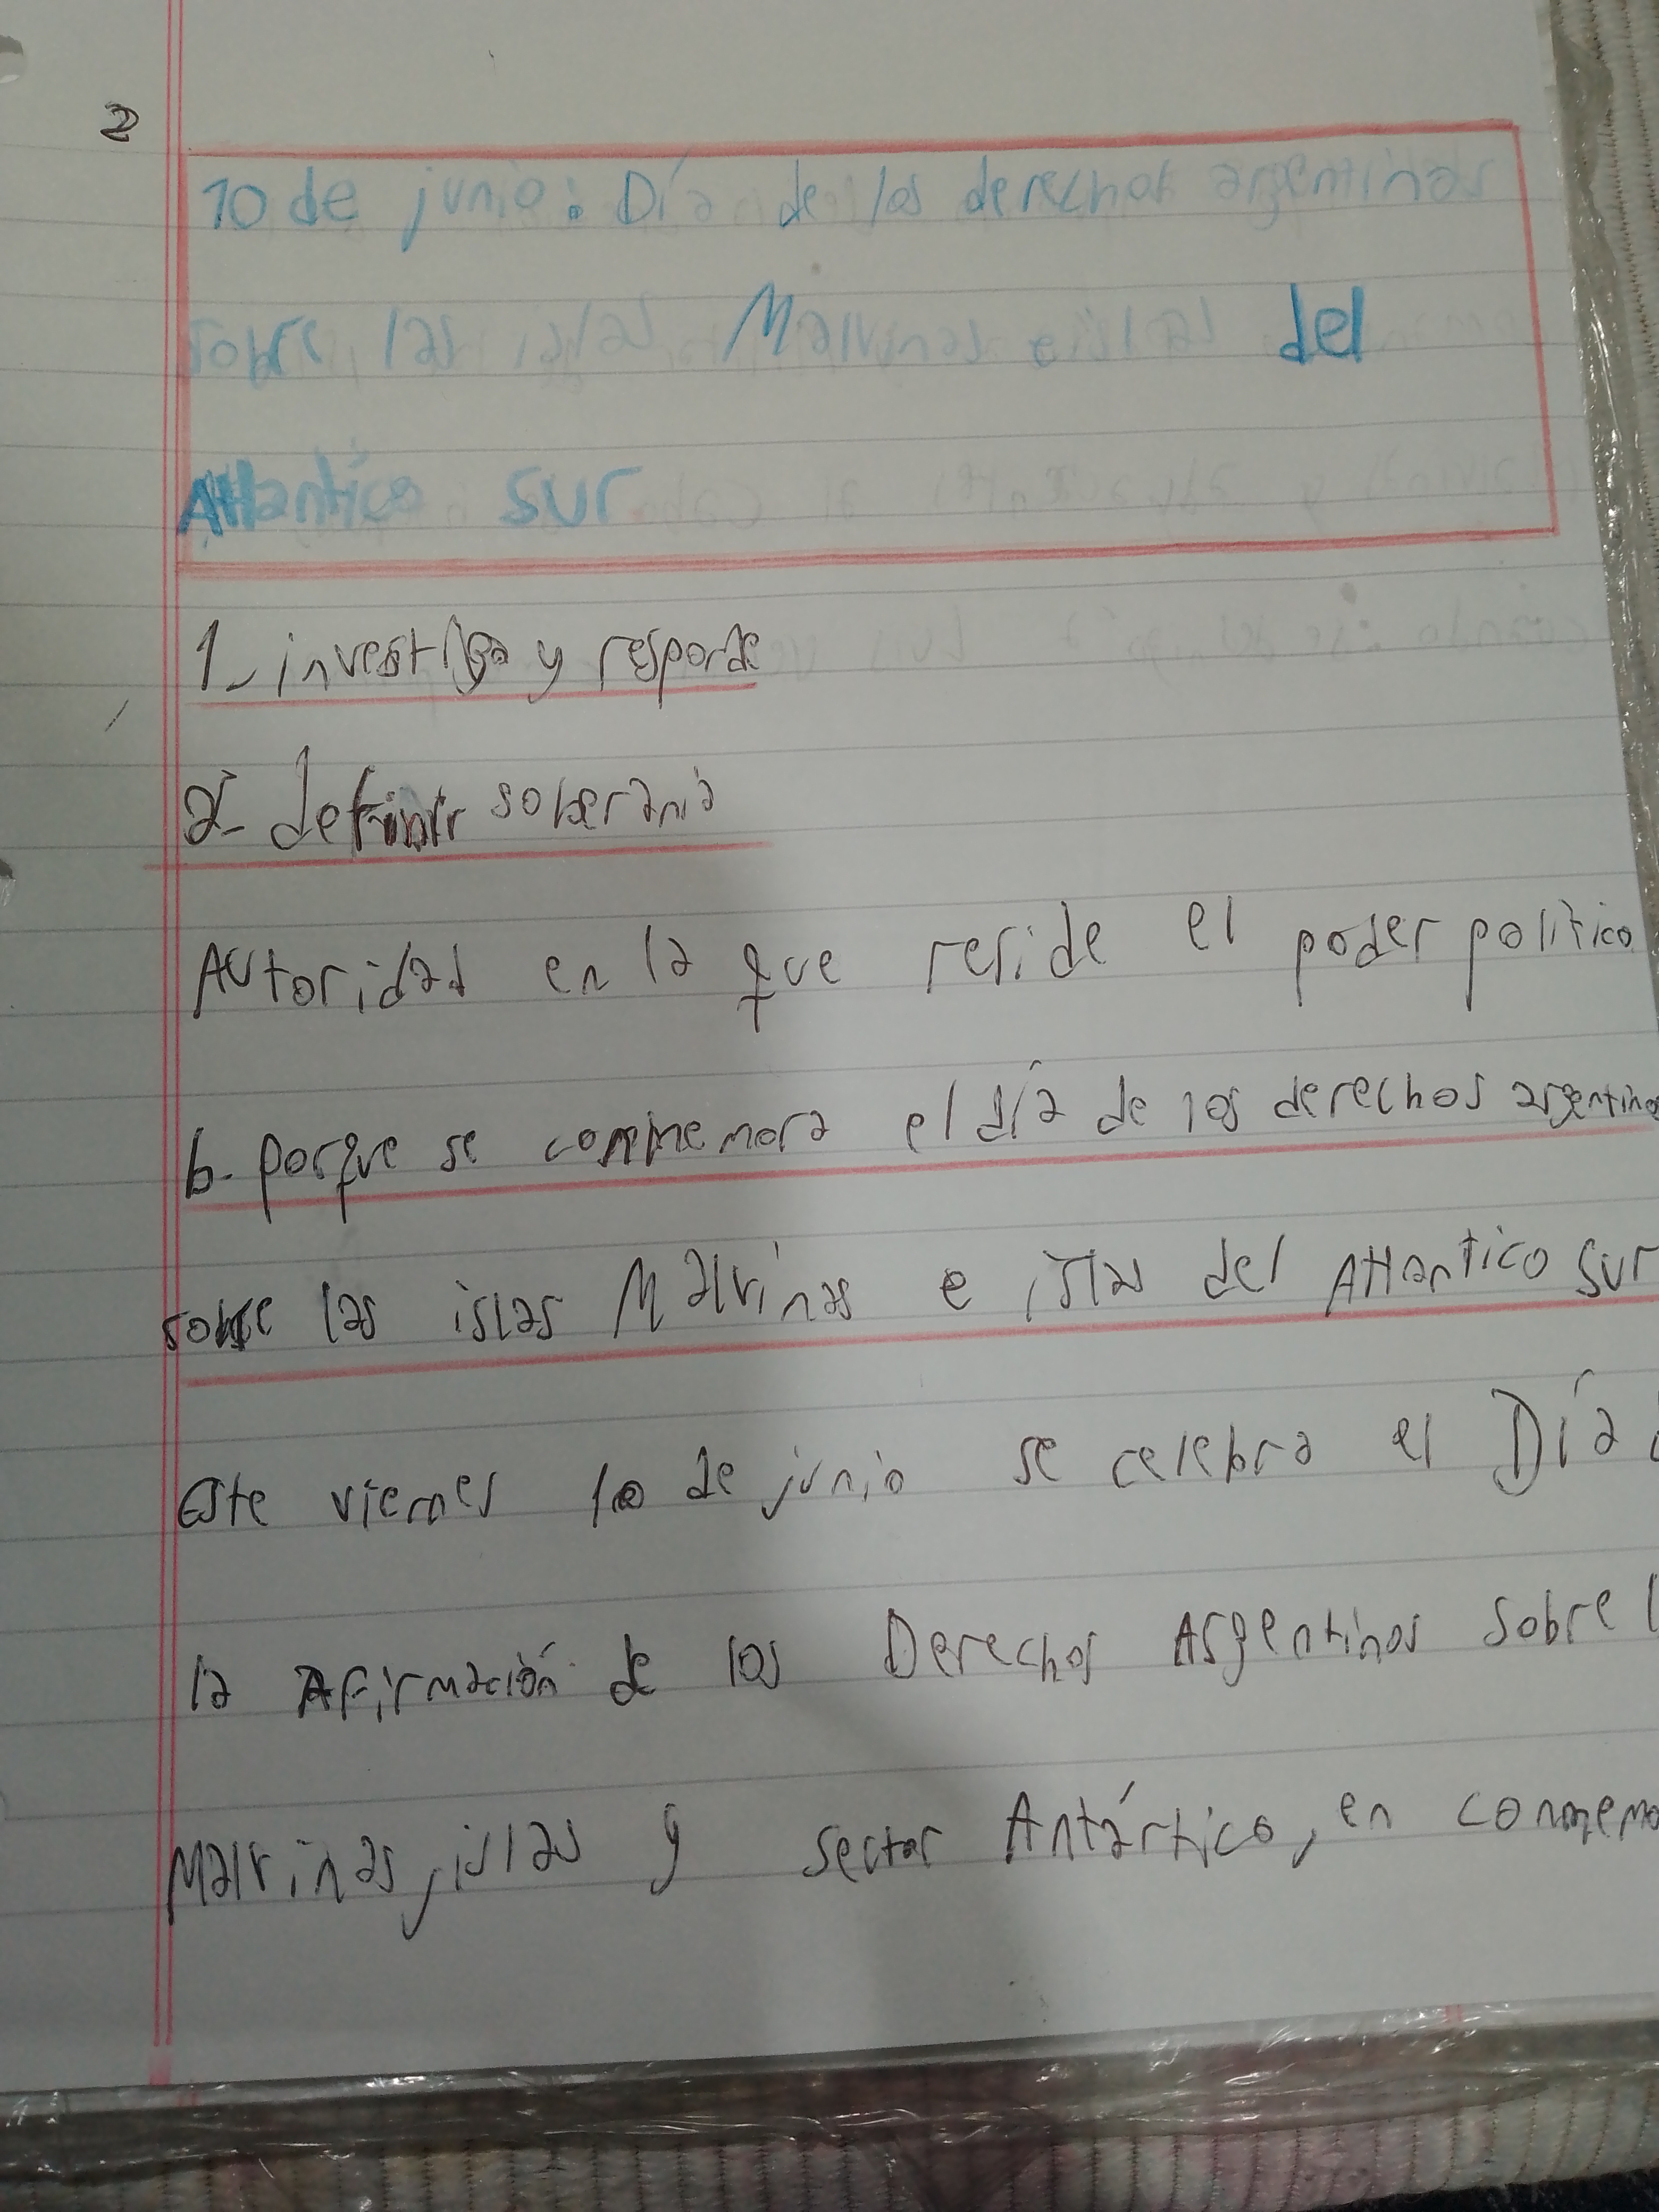 2
10 de junio: Día de los derechos argentinos
sobre las islas Malvinas e islas del
Atlantico sur
1_ investiga y responde
a- definir soberania
Autoridad en la que reside el poder politico
b- porque se conmemora el día de los derechos argentino
sobre las islas Malvinas e islas del Atlantico sur
este viernes 10 de junio se celebra el Día
la Afirmación de los Derechos Argentinos sobre l
Malvinas, islas y sector Antártico, en conmemo